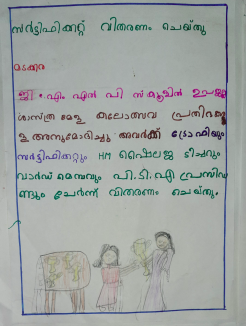 സർട്ടിഫിക്കറ്റ് വിതരണം ചെയ്തു
മടക്കര
ജി. എം എൽ പി സ്കൂളിൽ ഉപജില്ല
ശാസ്ത്ര മേള കലോത്സവ പ്രതിഭകളെ
അനുമോദിച്ചു അവർക്ക് ട്രോഫിയും
സർട്ടിഫിക്കറ്റും HM ഷൈലജ ടീച്ചറും
വാർഡ് മെമ്പറും പി.ടി.എ പ്രസിഡ
ണ്ടും ചേർന്ന് വിതരണം ചെയ്തു.